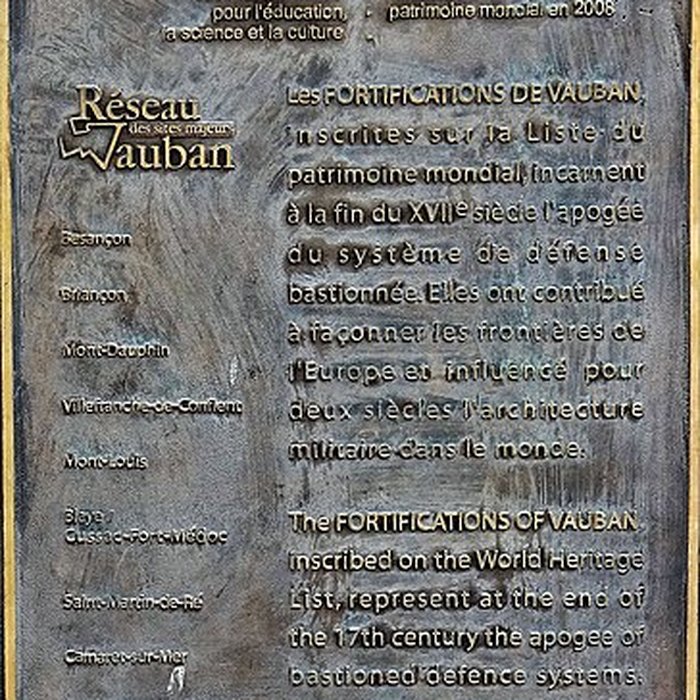 pour l'éducation,
la science et la culture
patrimoine mondial en 2008
Réseau
des sites majeurs
Vauban
Besançon
Briançon
Mont-Dauphin
Villefranche-de-Conflent
Mont-Louis
Blaye /
Cussac-Fort-Médoc
Saint-Martin-de-Ré
Camaret-sur-Mer
Les FORTIFICATIONS DE VAUBAN,
inscrites sur la Liste du
patrimoine mondial, incarnent
à la fin du XVIIe siècle l'apogée
du système de défense
bastionnée. Elles ont contribué
à façonner les frontières de
l'Europe et influencé pour
deux siècles l'architecture
militaire dans le monde.
The FORTIFICATIONS OF VAUBAN,
inscribed on the World Heritage
List, represent at the end of
the 17th century the apogee of
bastioned defence systems.